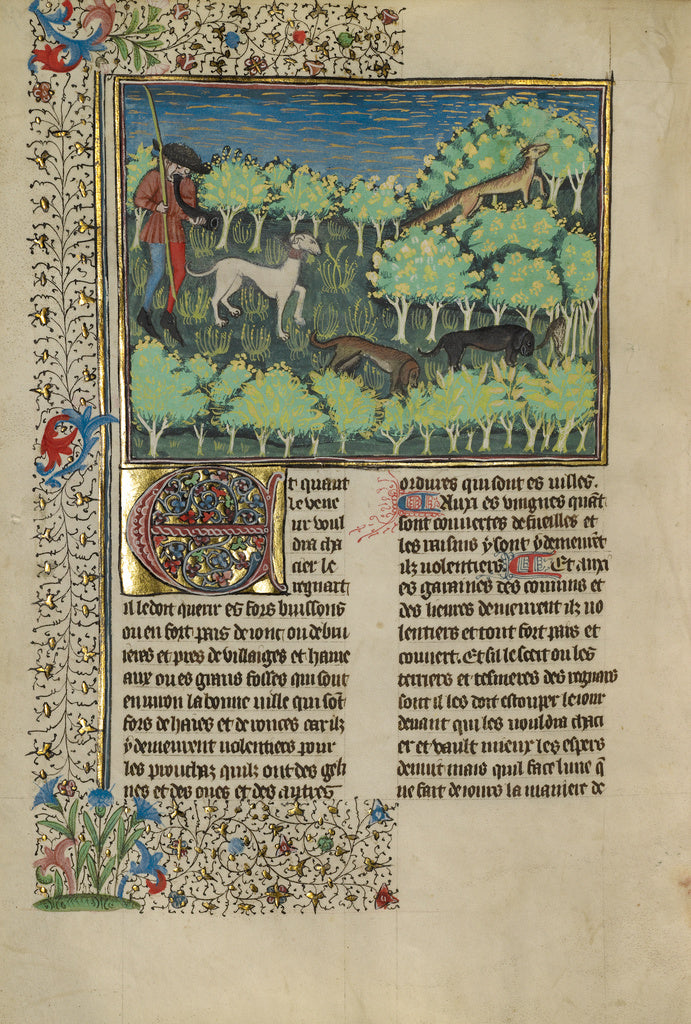 Et quant
le vene
ur voul
dra cha
cier le
regnart
il le doit querir es fors buissons
ou en fort pais de ionc ou de bru
ieres et pres de villaiges et hame
aux ou es grans fosses qui sont
enuiron la bonne ville qui sōt
fors de haies et de ronces car ilz
y demeurent uolentiers pour
les prouchaz quilz ont des geli
nes et des oues et des autres
ordures qui sont es uilles.
Auxi es vingnes quāt
sont couuertes de fueilles et
les raisins y sont y demeurēt
ilz uolentiers Et auxi
es garaines des counins et
des lieures demeurent ilz uo
lentiers et tout fort pais et
couuert. Et sil le scet ou les
terriers et tesnieres des regnars
sont il les doit estouper le iour
deuant qui les uouldra chaci
er et vault mieux les espers
de nuit mais quil face lune q̄
ne fait de iours la maniere de